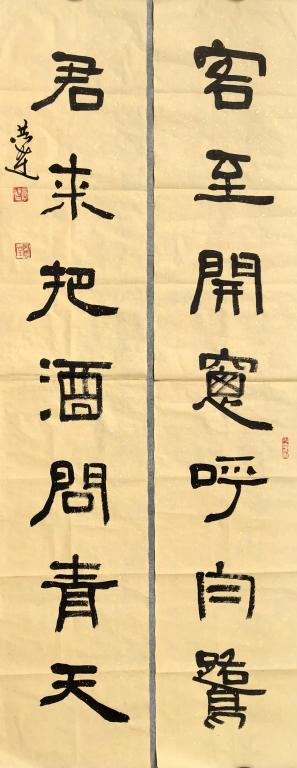 客至開窻呼白鷺
君来把酒問青天